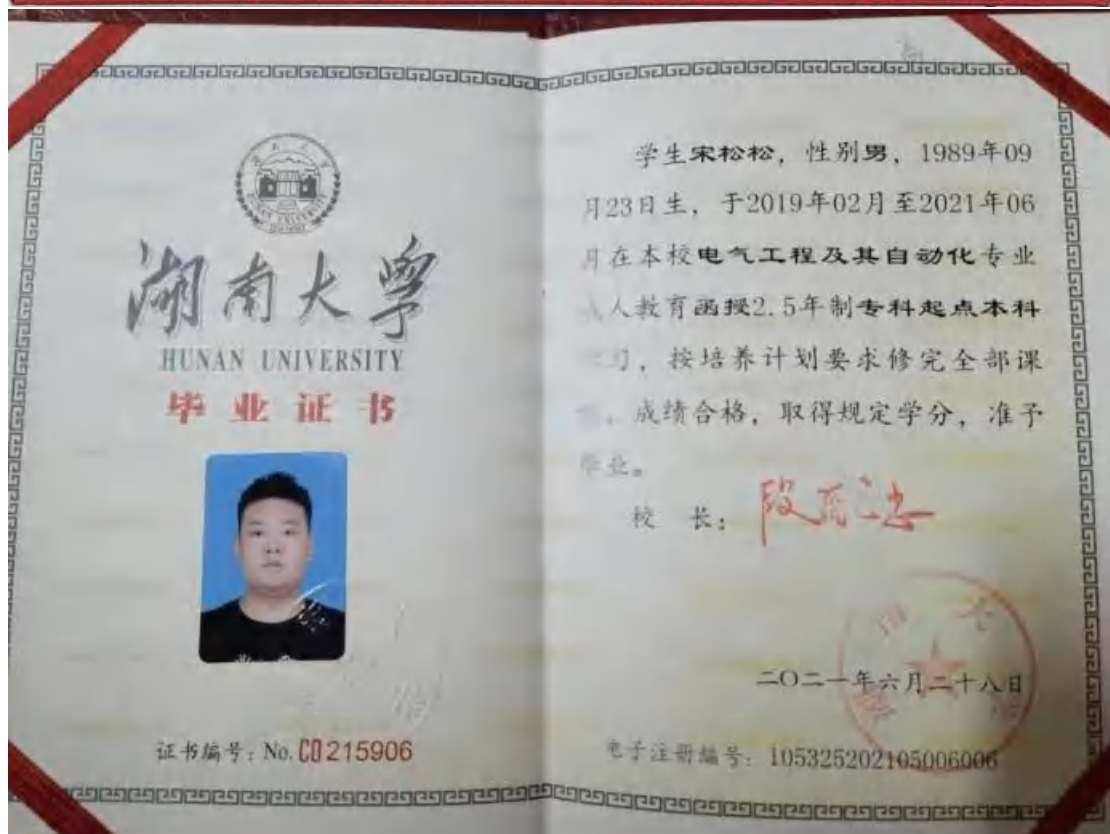 湖南大学
HUNAN UNIVERSITY
毕业证书
证书编号：No. C0215906
学生宋松松，性别男，1989年09
月23日生，于2019年02月至2021年06
月在本校电气工程及其自动化专业
人教育函授2.5年制专科起点本科
习，按培养计划要求修完全部课
，成绩合格，取得规定学分，准予
毕业。
校 长：
二〇二一年六月二十八日
电子注册编号：105325202105006006